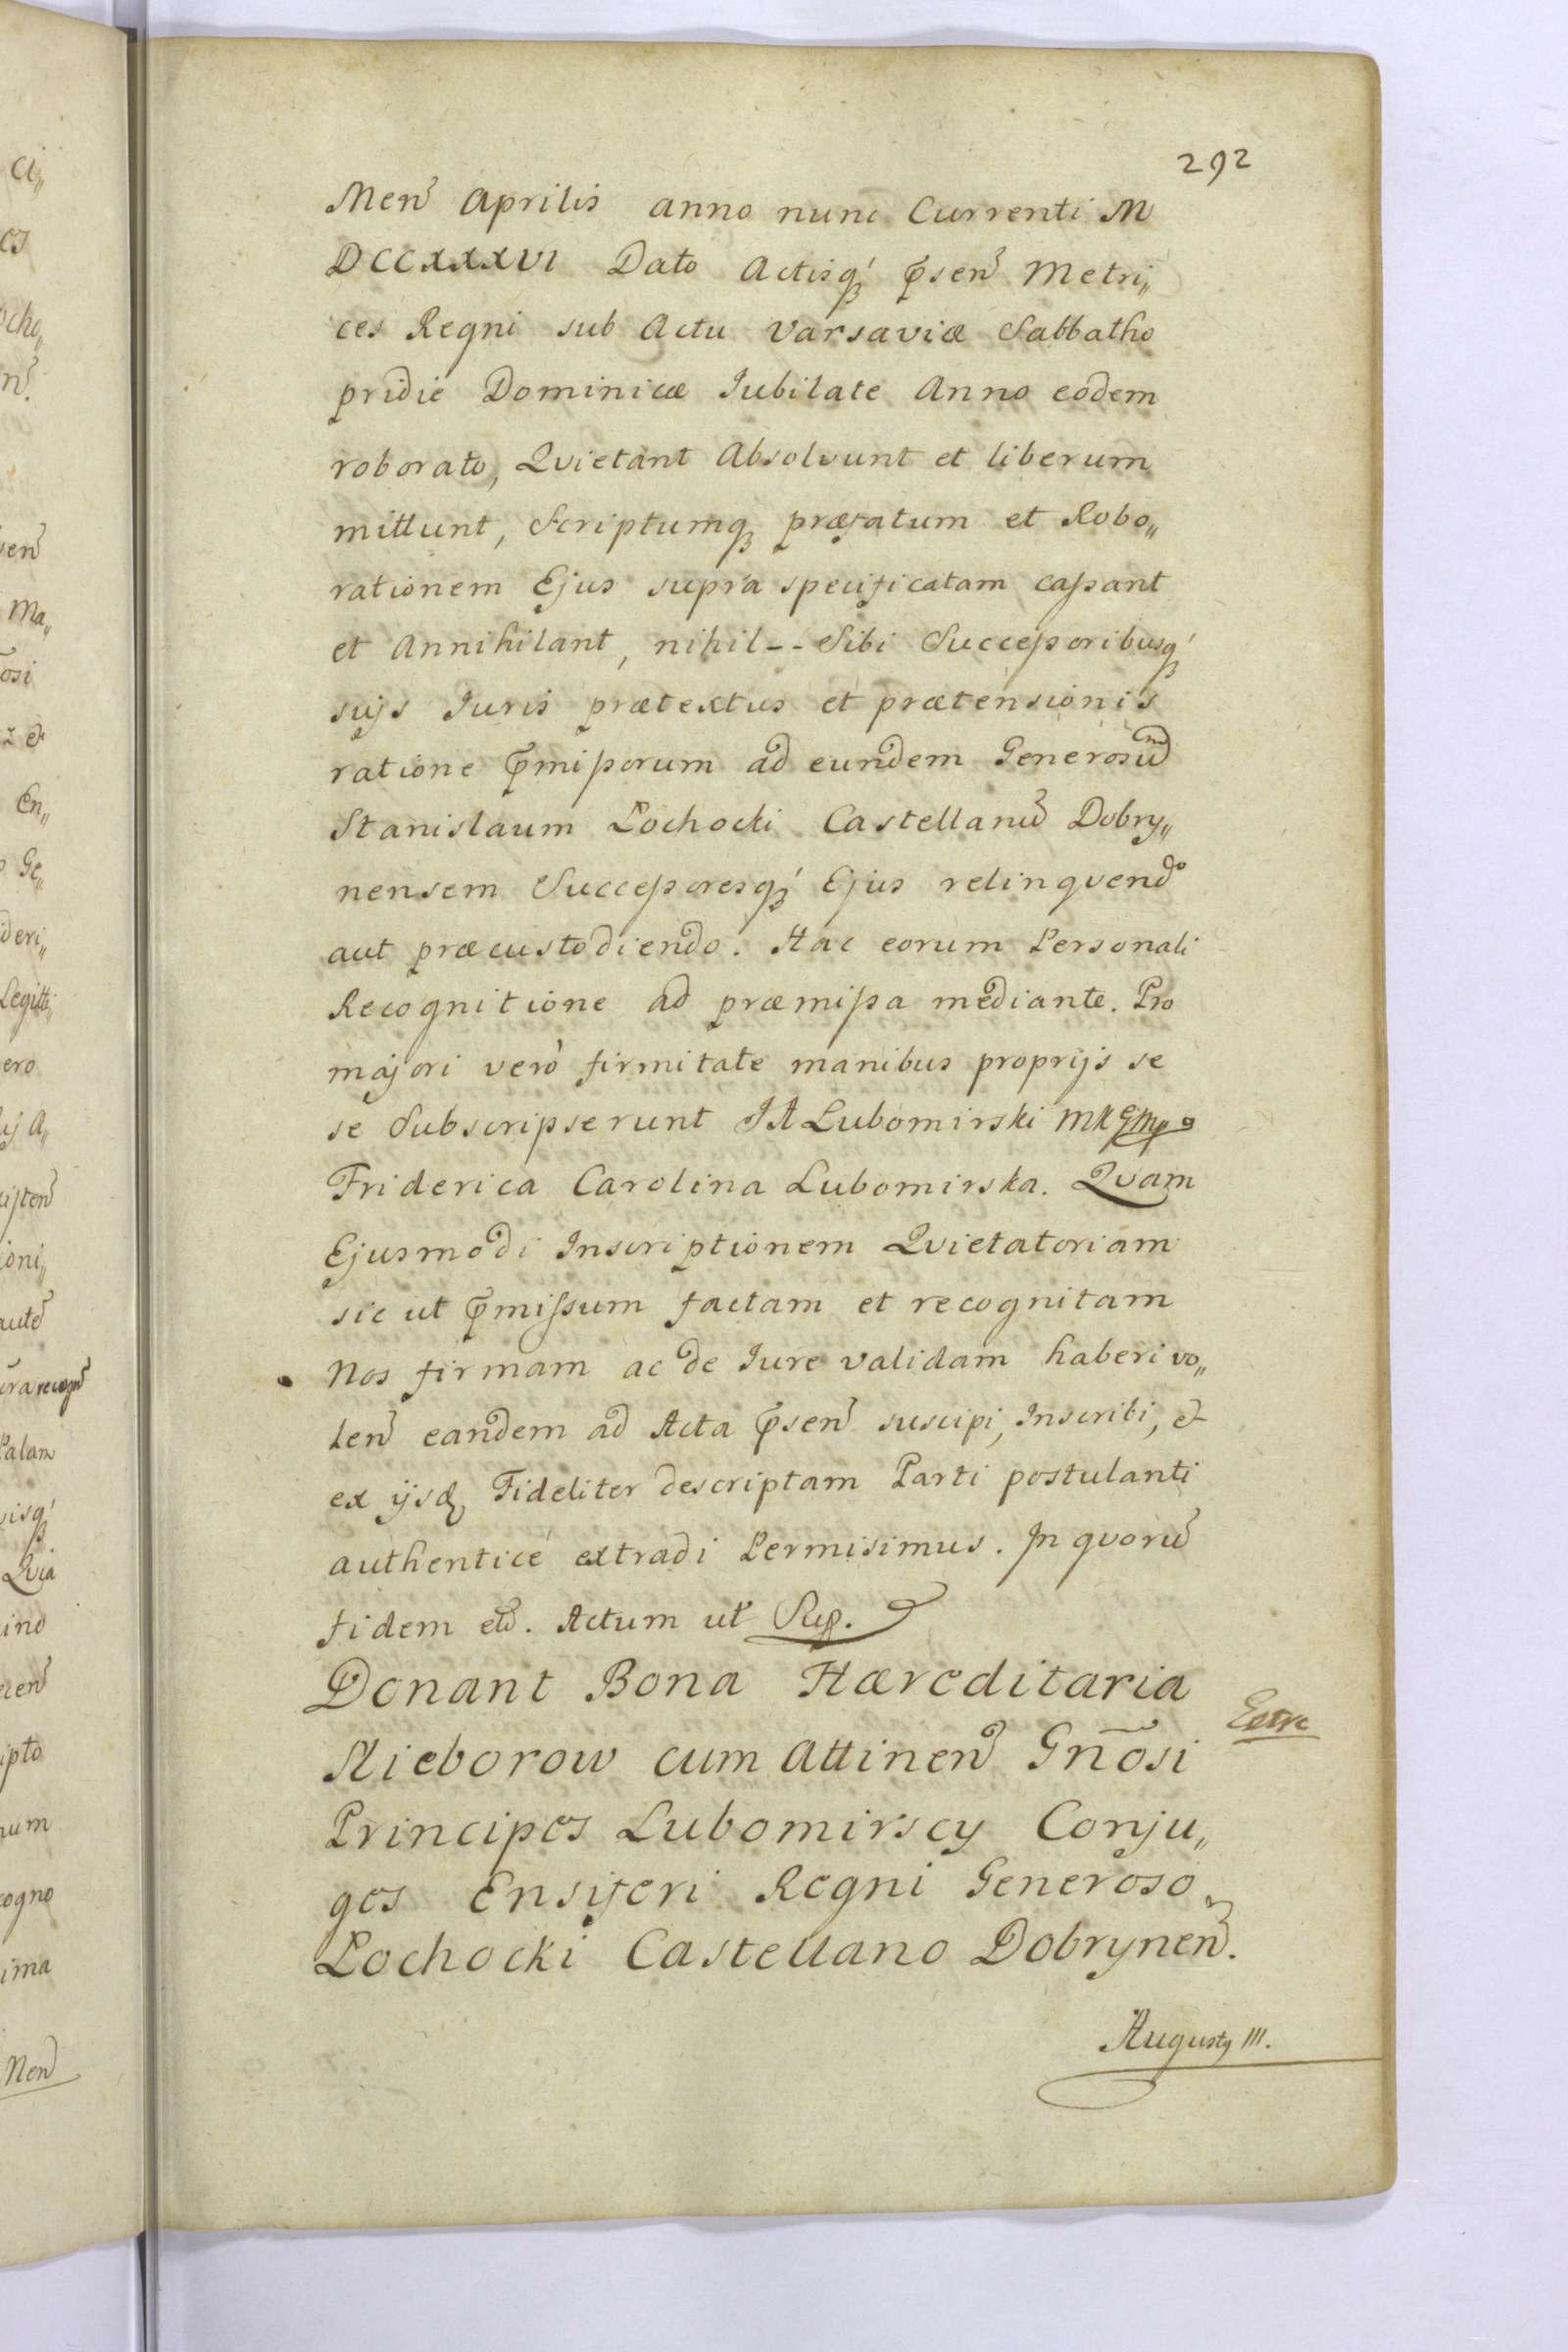 292
Men̄ Aprilis anno nunc Currenti M
DCCXXXVI Dato Actisq́ꝫ p̄sen̄ Metri„
ces Regni sub Actu Varsaviæ Sabbatho
pridie Dominicæ Iubilate Anno eodem
roborato, Qvietant Absolvunt et liberum
mittunt, Scriptumqꝫ præfatum et Robo„
rationem Ejus supra specificatam caſsant
et Annihilant, nihil-- Sibi Succeſsoribusq́ꝫ
sujs Iuris prætextus et prætensionis
ratione p̄miſsorum ad eundem Generosum̄
Stanislaum Łochocki Castellanū Dobry„
nensem Succeſsoresq́ꝫ Ejus relinqvendo
aut præcustodiendo. Hac eorum Personali
Recognitione ad præmiſsa mediante. Pro
majori verò firmitate manibus proprijs se
se Subscripserunt JA Lubomirski MK
Friderica Carolina Lubomirska. Qvam
Ejusmodi Inscriptionem Qvietatoriam
sic ut p̄miſsum factam et recognitam
Nos firmam ac de Iure validam haberi vo„
len̄ eandem ad Acta p̄sen̄ suscipi, Inscribi, &
ex ijsdꝫ Fideliter descriptam Parti postulanti
authenticè extradi Permisimus. In qvorū
fidem etc̄. Actum ut Sup̄.
Donant Bona Hæreditaria
Nieborow cum Attinen̄ Gn̄osi
Principes Lubomirscy Conju„
ges Ensiferi Regni Generoso
Łochocki Castellano Dobrynen̄.
Extrc
Augusty III.
ci„
es
ocho„
n̄.
ven̄
Ma„
osi
&
En„
Ge„
deri„
Legitti„
ero
ij A„
isten̄
ioni„
autē
recogn̄
Palam
visq́ꝫ
Qvia
ino
cen̄
ipto
num
cogno
ima
Nen̄